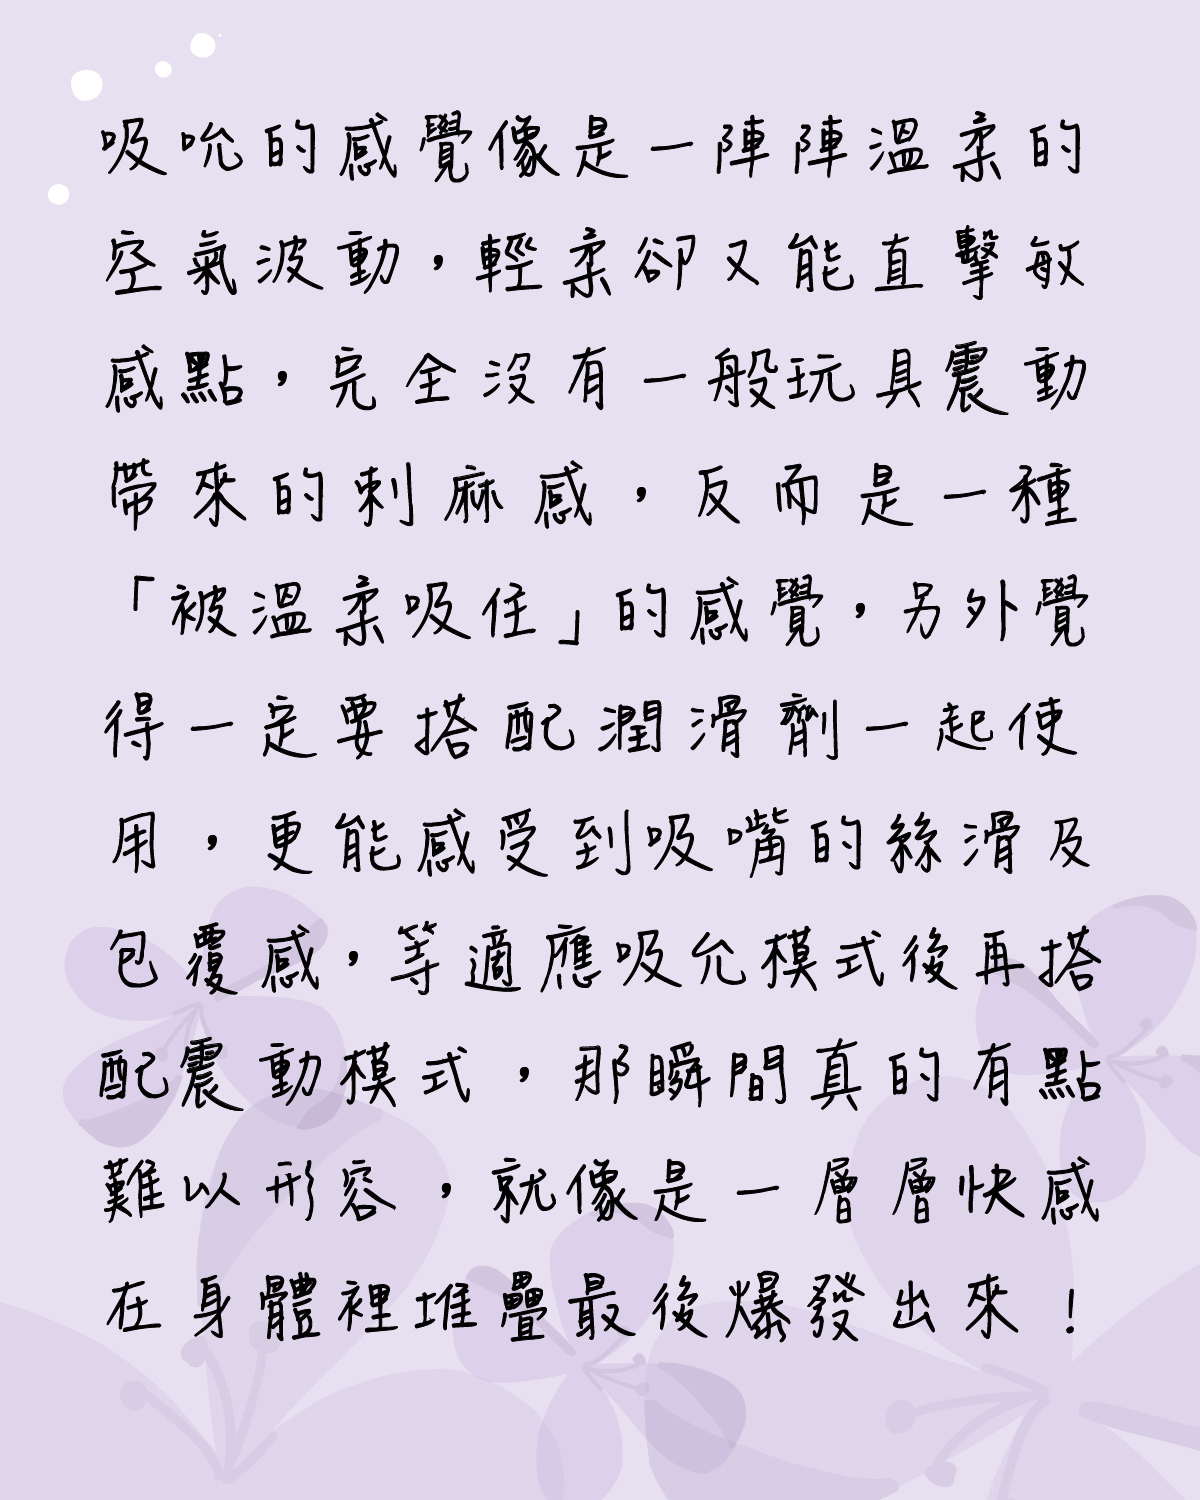 吸吮的感覺像是一陣陣溫柔的
空氣波動，輕柔卻又能直擊敏
感點，完全沒有一般玩具震動
帶來的刺麻感，反而是一種
「被溫柔吸住」的感覺，另外覺
得一定要搭配潤滑劑一起使
用，更能感受到吸嘴的絲滑及
包覆感，等適應吸允模式後再搭
配震動模式，那瞬間真的有點
難以形容，就像是一層層快感
在身體裡堆疊最後爆發出來！